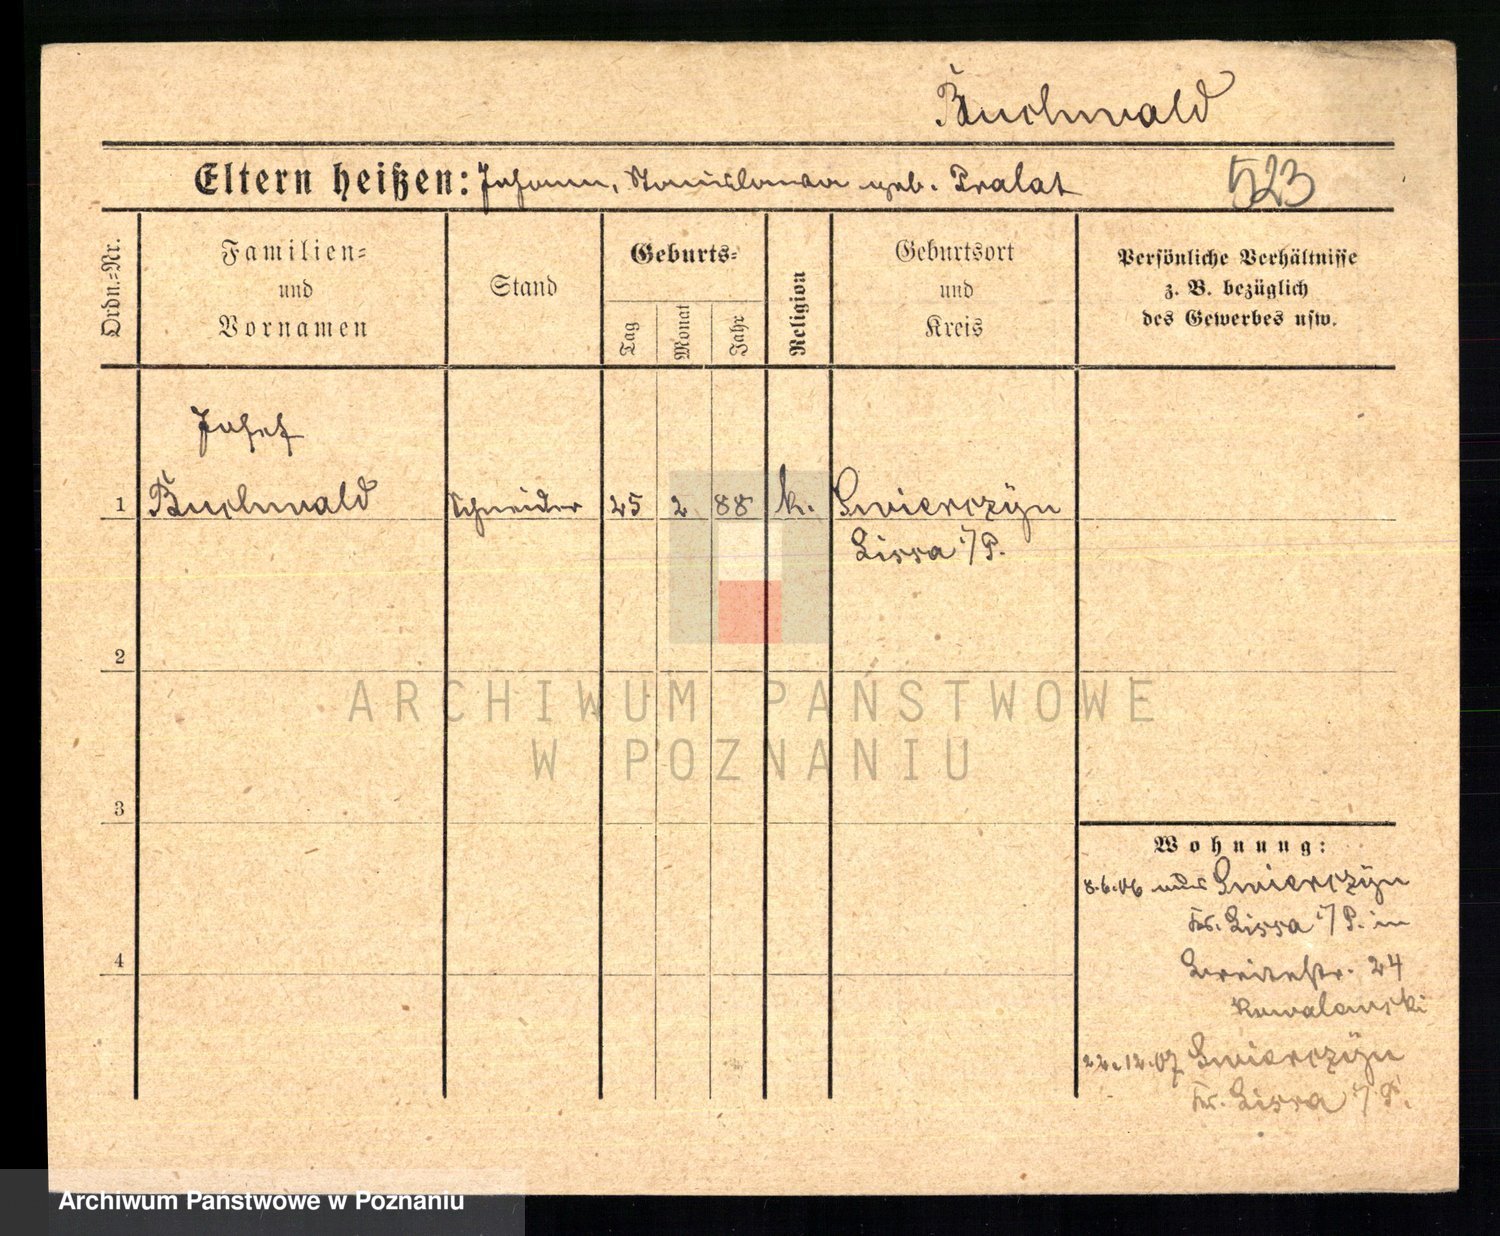 Buchwald
Eltern heißen: Johann, Stanislawa geb. Pralat 523
Ordn.=Nr.
Familien=
und
Vornamen
Stand
Geburts=
Tag
Monat
Jahr
Religion
Geburtsort
und
Kreis
Persönliche Verhältnisse
z. B. bezüglich
des Gewerbes usw.
Josef
1 Buchwald Schneider 25 2 88 k. Gwierczyn
Lissa i/P.
2
3
4
Wohnung:
8.6.06 aus Gwierczyn
Kr. Lissa i/P. in
Breitestr. 24
Kowalewski
22.12.07 Gwierczyn
Kr. Lissa i/P.
ARCHIWUM PAŃSTWOWE
W POZNANIU
Archiwum Państwowe w Poznaniu